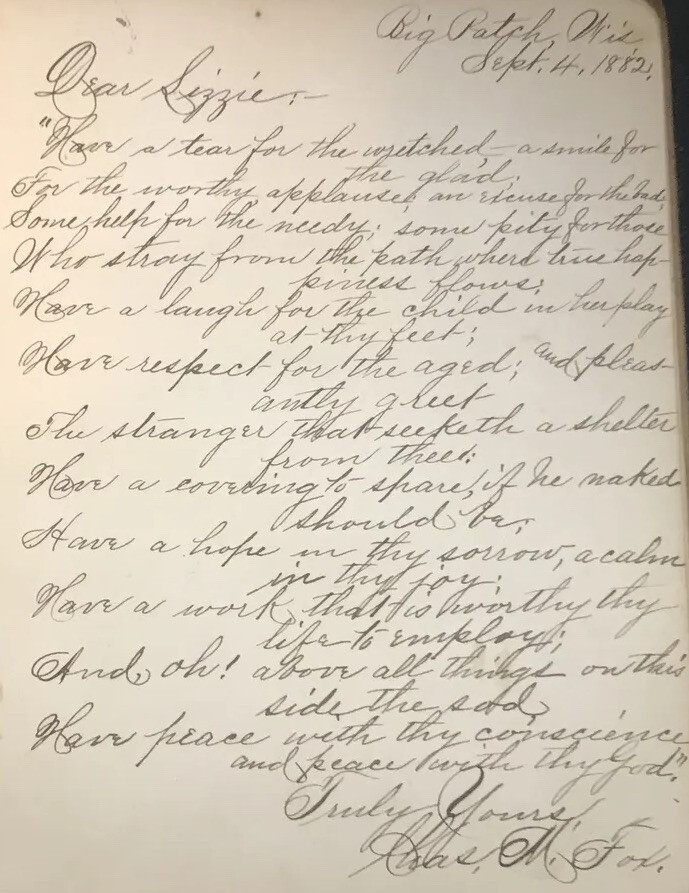 Big Patch, Wis,
Sept. 4, 1882.
Dear Lizzie:—
"Have a tear for the wretched — a smile for
the glad;
For the worthy, applause; an excuse for the bad;
Some help for the needy; some pity for those
Who stray from the path where true hap-
piness flows;
Have a laugh for the child in her play
at thy feet;
Have respect for the aged; and pleas-
antly greet
The stranger that seeketh a shelter
from thee;
Have a covering to spare, if he naked
should be;
Have a hope in thy sorrow, a calm
in thy joy;
Have a work that is worthy thy
life to employ;
And, oh! above all things on this
side the sod,
Have peace with thy conscience
and peace with thy God".
Truly Yours,
Chas. M. Fox.